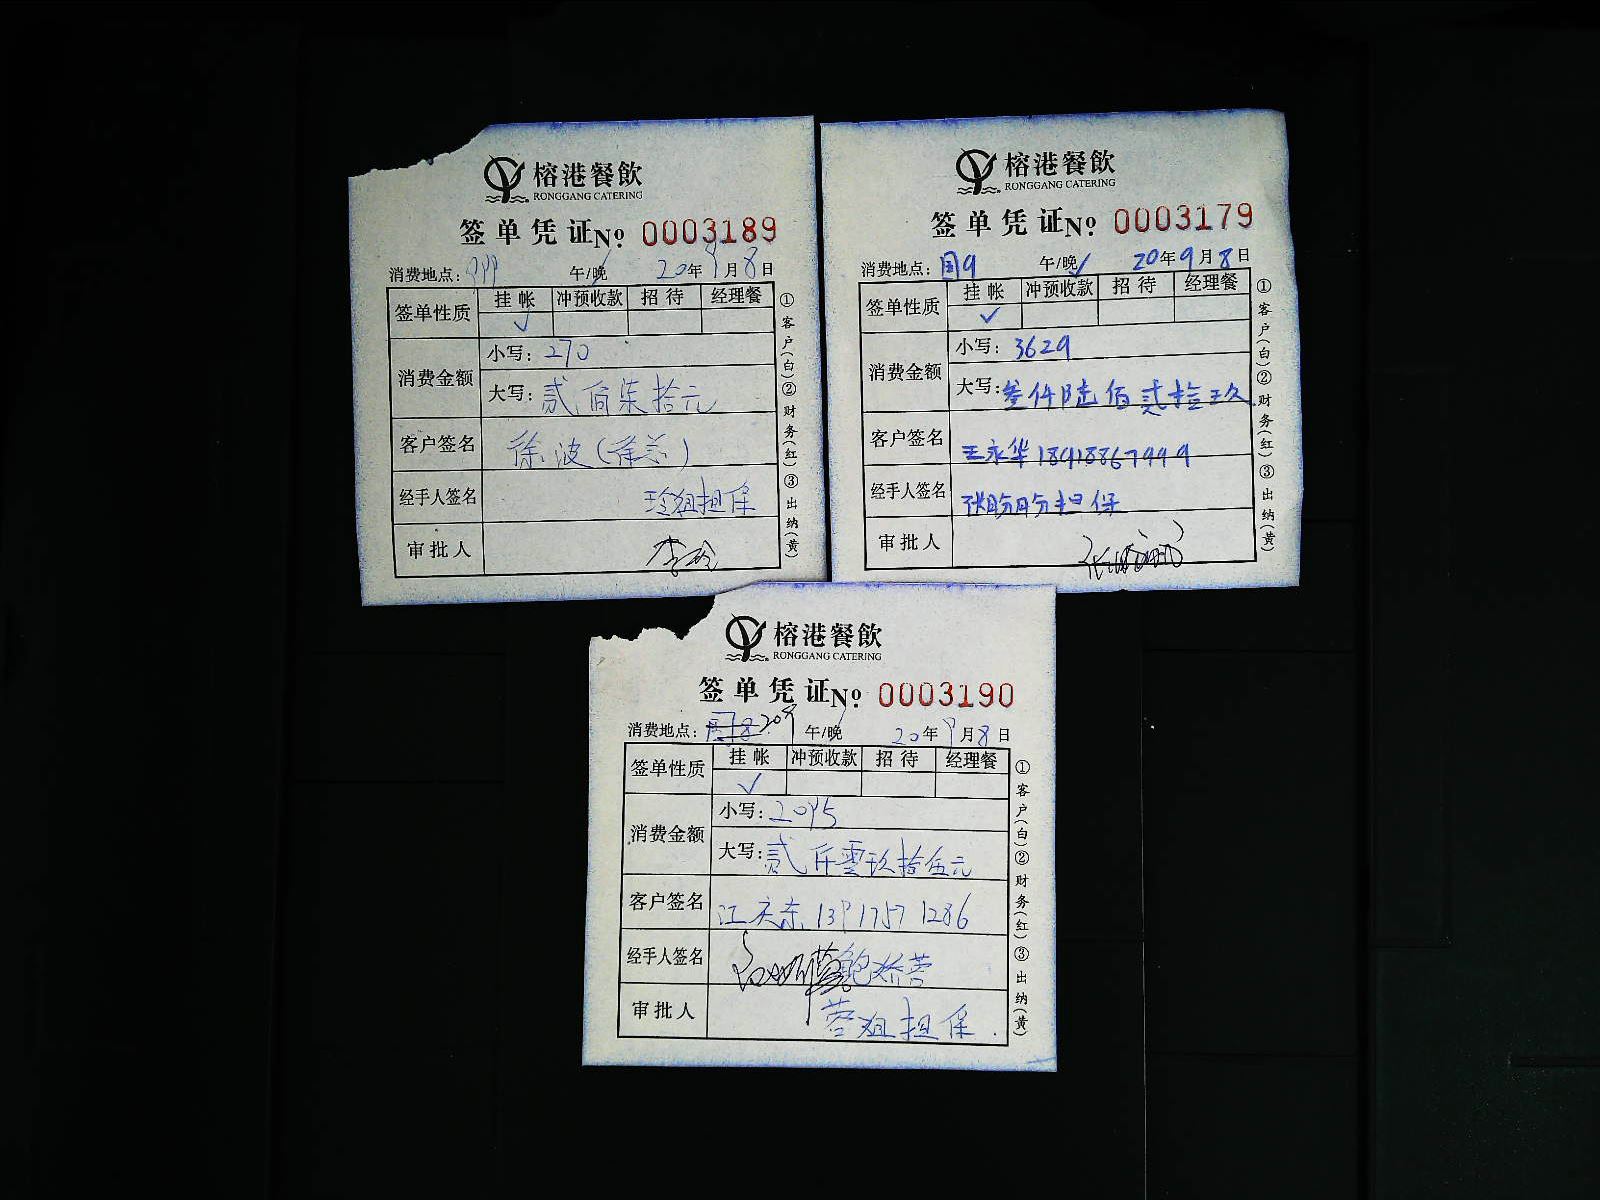 榕港餐飲
RONGGANG CATERING
签单凭证№ 0003189
消费地点: 999 午/晚 20年9月8日
签单性质 挂帐 冲预收款 招待 经理餐
✓
消费金额 小写: 270
大写: 贰佰柒拾元
客户签名 徐波(徐总)
经手人签名 玲姐担保
审批人 李玲
①客户(白)②财务(红)③出纳(黄)
榕港餐飲
RONGGANG CATERING
签单凭证№ 0003179
消费地点: 国9 午/晚✓ 20年9月8日
签单性质 挂帐 冲预收款 招待 经理餐
✓
消费金额 小写: 3629
大写: 叁仟陆佰贰拾玖
客户签名 王永华 18918867999
经手人签名 张盼盼担保
审批人
①客户(白)②财务(红)③出纳(黄)
榕港餐飲
RONGGANG CATERING
签单凭证№ 0003190
消费地点: 209 午/晚 20年9月8日
签单性质 挂帐 冲预收款 招待 经理餐
✓
消费金额 小写: 2095
大写: 贰仟零玖拾伍元
客户签名 江庆东 13917571286
经手人签名 鲍娇蓉
审批人 蓉姐担保.
①客户(白)②财务(红)③出纳(黄)